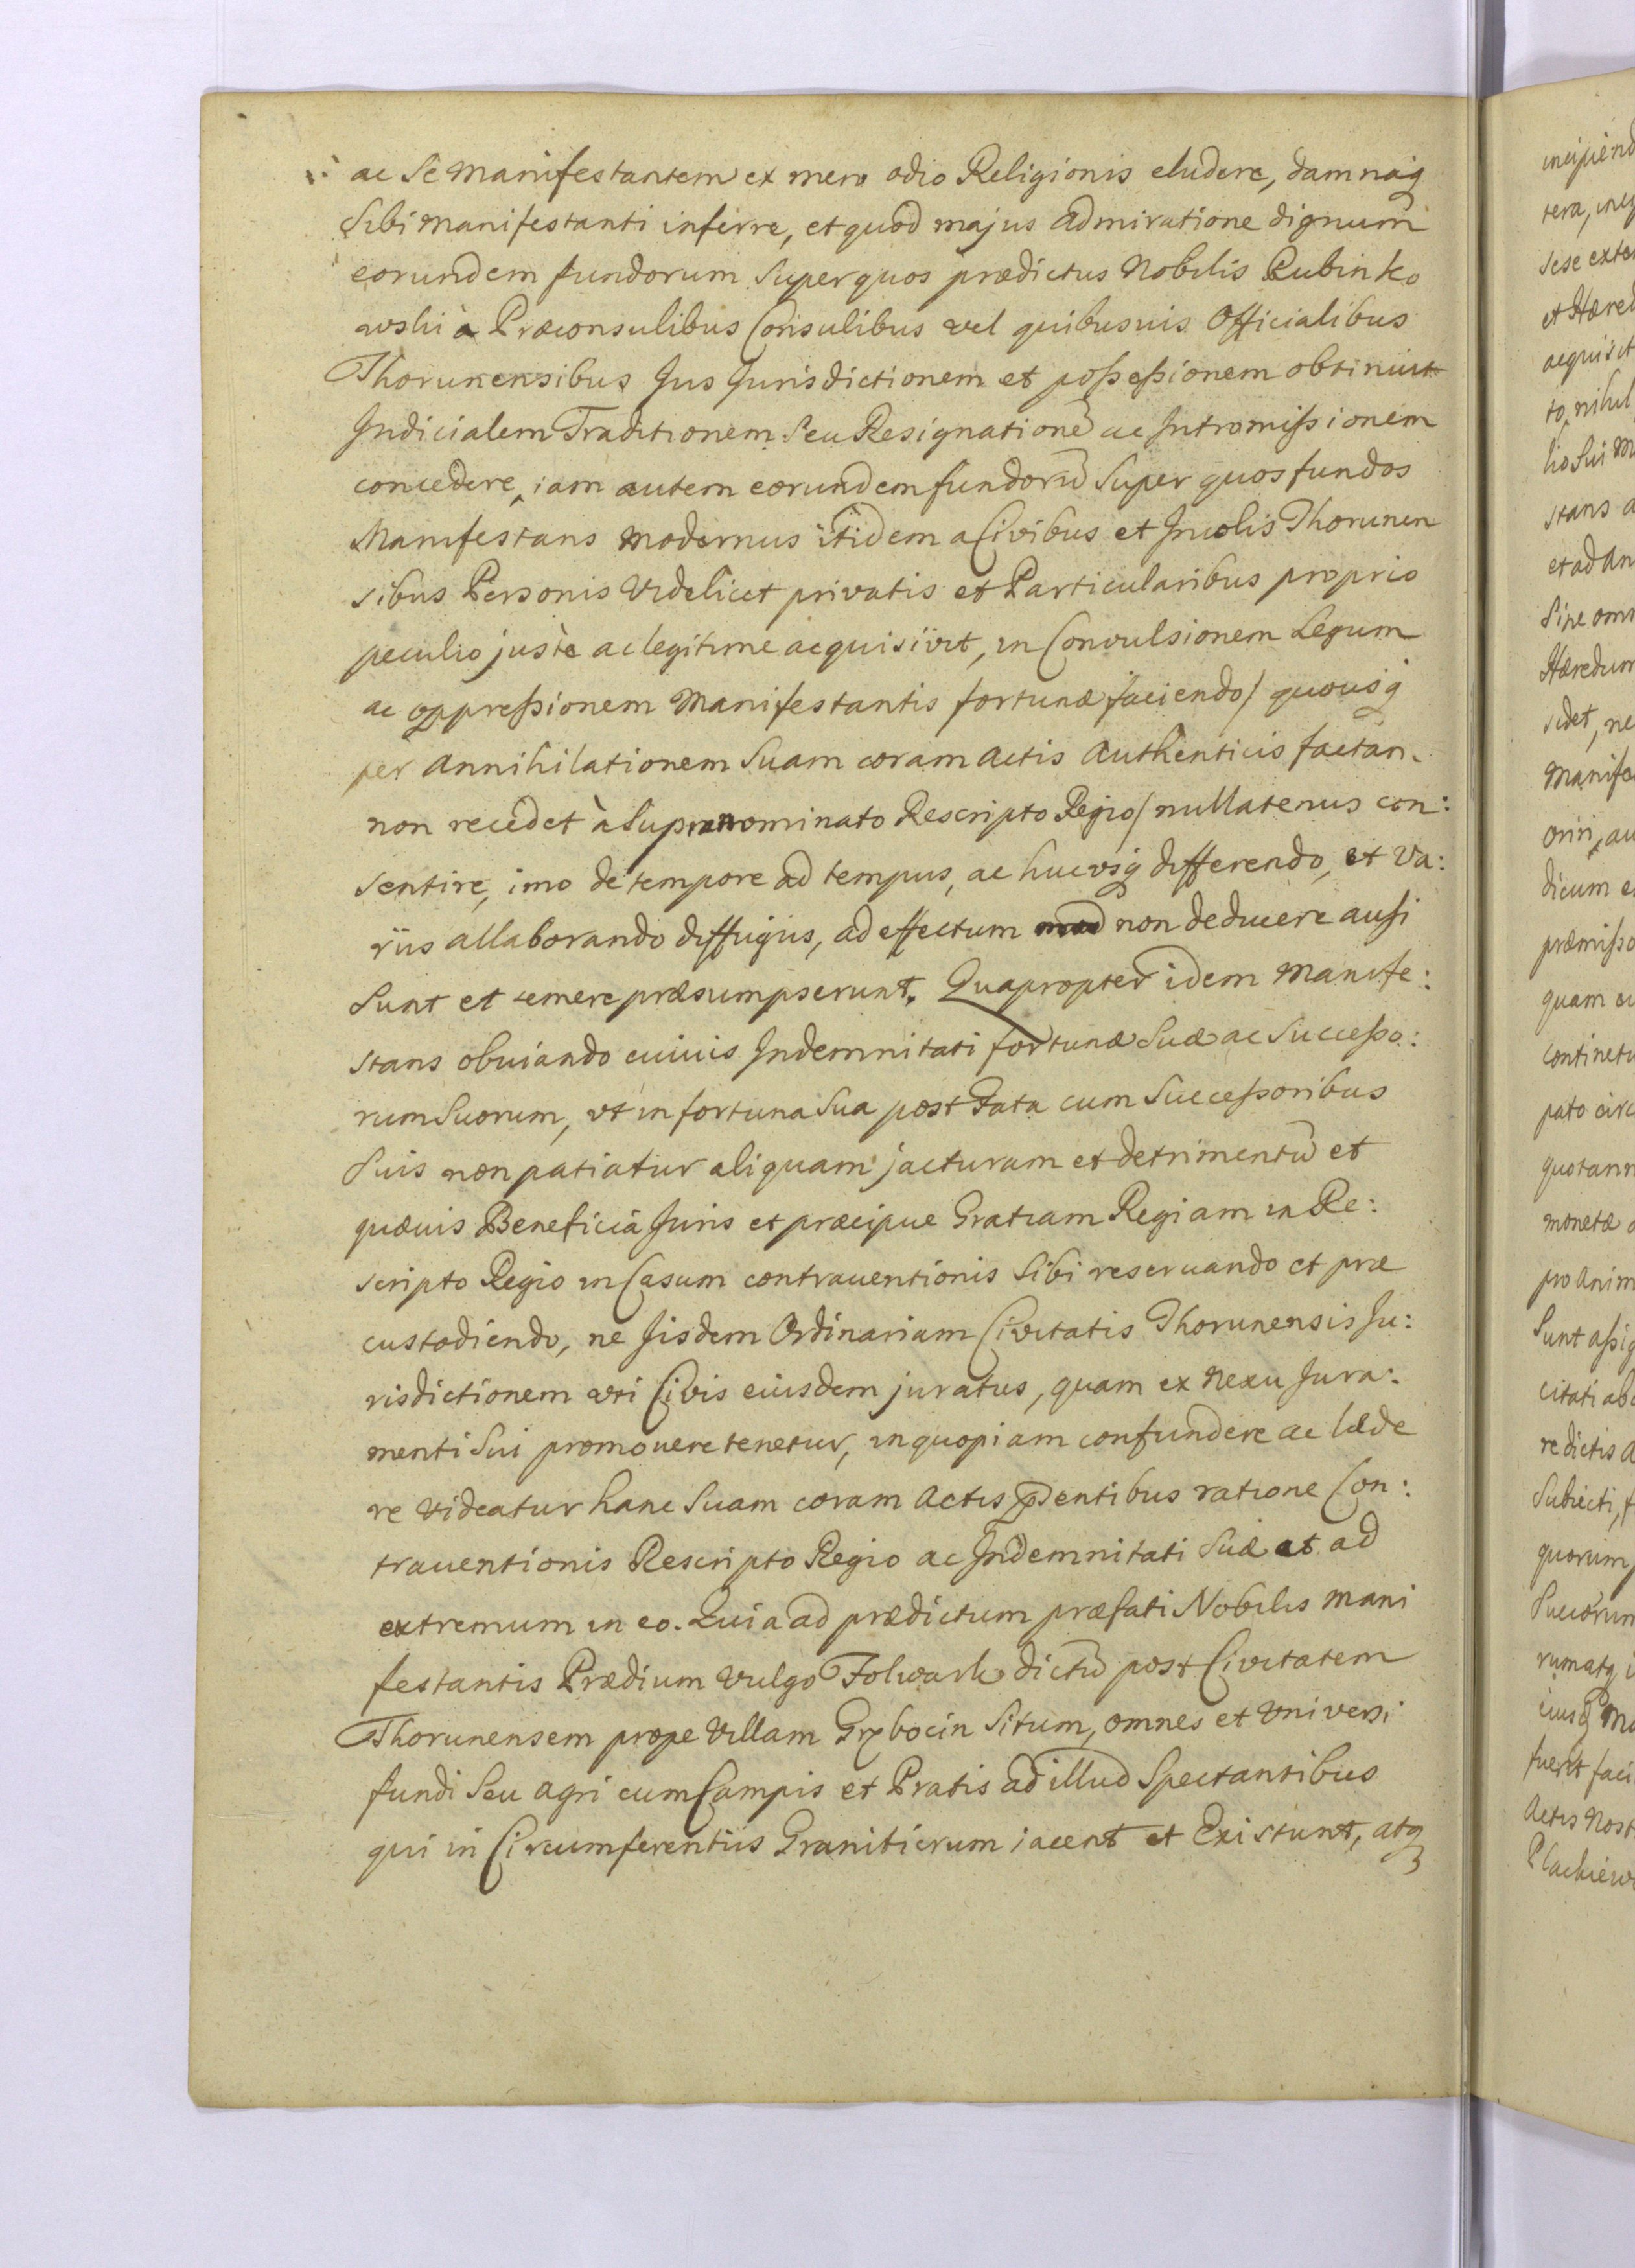 ac Se Manifestantem ex mero odio Religionis eludere, damnaq
Sibi Manifestanti inferre, et quod majus admiratione dignum
eorundem fundorum Super quos prædictus Nobilis Rubinko
wski à Præconsulibus Consulibus vel quibusuis Officialibus
Thorunensibus Jus Jurisdictionem et poßeßionem obtinuit
Judicialem Traditionem Seu Resignationē ac Intromißionem
concedere, iam autem eorundem fundorū Super quos fundos
Manifestans modernus itidem a Civibus et Incolis Thorunen
sibus Personis Videlicet privatis et Particularibus proprio
peculio justè ac legitime acquisivit, in Convulsionem Legum
ac oppreßionem Manifestantis fortunæ faciendo / quousq
per Annihilationem Suam coram Actis Authenticis factam
non recedet à Supranominato Rescripto Regio / nullatenus con:
sentire, imo de tempore ad tempus, ac hucvsq differendo, et Va:
riis allaborando diffugiis, ad effectum non deducere ausi
Sunt et temere præsumpserunt. Quapropter idem Manife:
stans obuiando cuiuis Indemnitati fortunæ Suæ ac Succeßo:
rum Suorum, vt in fortuna Sua post Fata cum Succeßoribus
Suis non patiatur aliquam jacturam et detrimentū et
quæuis Beneficia Juris et præcipue Gratiam Regiam in Re:
scripto Regio in Casum contrauentionis Sibi reseruando et præ
custodiendo, ne Iisdem Ordinariam Civitatis Thorunensis Ju:
risdictionem vti Civis eiusdem juratus, quam ex Nexu Jura:
menti Sui promouere tenetur, in quopiam confundere ac læde
re Videatur hanc Suam coram Actis pñsentibus ratione Con:
trauentionis Rescripto Regio ac Indemnitati Suæ et ad
extremum in eo. Quia ad prædictum præfati Nobilis Mani
festantis Prædium Vulgo Folwark dictū post Civitatem
Thorunensem prope Villam Grzbocin Situm, omnes et Vniversi
fundi Seu agri cum Campis et Pratis ad illud Spectantibus
qui in Circumferentiis Granitierum iacent et Existunt, atq